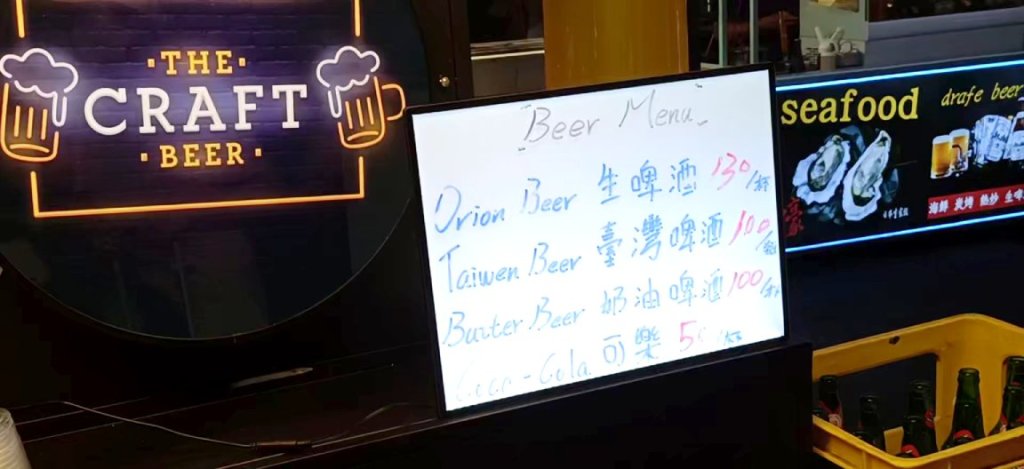 ·THE·
CRAFT
·BEER·
"Beer Menu"
Orion Beer 生啤酒 130/杯
Taiwen Beer 臺灣啤酒 100/
Buuter Beer 奶油啤酒 100/杯
Coca-Cola 可樂 /杯
seafood
drafe beer
海鮮 炭烤 熱炒 生啤